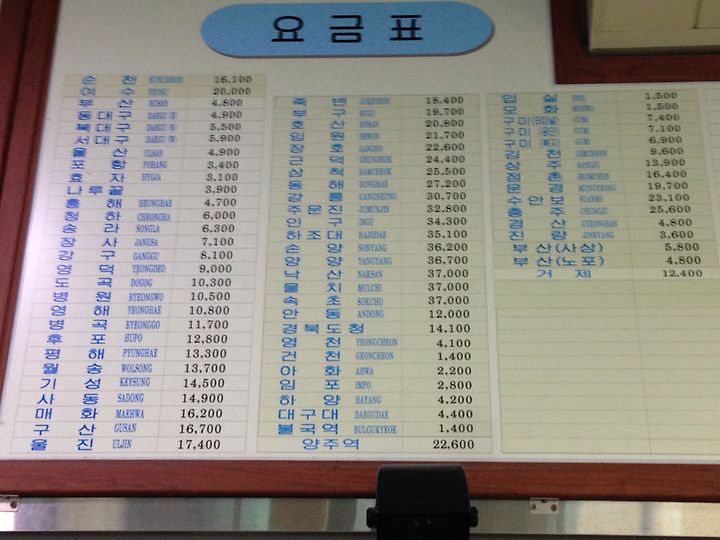 요금표
순천 SUNCHEON 16,100
여수 YEOSU 20,000
부산 BUSAN 4,800
동대구 DAEGU 4,900
북대구 DAEGU 5,500
서대구 DAEGU 5,900
울산 ULSAN 4,900
포항 POHANG 3,400
효자 HYOJA 3,100
나루끝 3,900
흥해 HEUNGHAE 4,700
청하 CHEONGHA 6,000
송라 SONGLA 6,300
장사 JANGSA 7,100
강구 GANGGU 8,100
영덕 YEONGDEO 9,000
도곡 DOGOG 10,300
병원 BYEONGWO 10,500
영해 YEONGHAE 10,800
병곡 BYEONGGO 11,700
후포 HUPO 12,800
평해 PYUNGHAE 13,300
월송 WOLSONG 13,700
기성 KEYSUNG 14,500
사동 SADONG 14,900
매화 MAEHWA 16,200
구산 GUSAN 16,700
울진 ULJIN 17,400
죽변 JUKBYEON 18,400
부구 BUGU 19,700
호산 HOSAN 20,800
임원 IMWON 21,700
장호 JANGHO 22,600
근덕 GEUNDEOK 24,400
삼척 SAMCHEOK 25,500
동해 DONGHAE 27,200
강릉 GANGNEUNG 30,700
주문진 JUMUNJIN 32,800
인구 INGU 34,300
하조대 HAJODAE 35,100
손양 SONYANG 36,200
양양 YANGYANG 36,700
낙산 NAKSAN 37,000
물치 MULCHI 37,000
속초 SOKCHO 37,000
안동 ANDONG 12,000
경북도청 14,100
영천 YEONGCHEON 4,100
건천 GEONCHEON 1,400
아화 AHWA 2,200
임포 IMPO 2,800
하양 HAYANG 4,200
대구대 DAEGUDAE 4,400
불국역 BULGUKYEOK 1,400
양주역 22,600
입실 IPSIL 1,500
모화 MOHWA 1,500
구미 GUMI 7,400
구미 GUMI 7,100
구미 GUMI 6,900
김천 GIMCHEON 9,600
상주 SANGJU 13,900
점촌 JEOMCHON 16,400
문경 MUNGYEONG 19,700
수안보 SUANBO 23,100
충주 CHUNGJU 25,600
경산 GYEONGSAN 4,800
진량 JINRYANG 3,600
부산(사상) 5,800
부산(노포) 4,800
거제 12,400